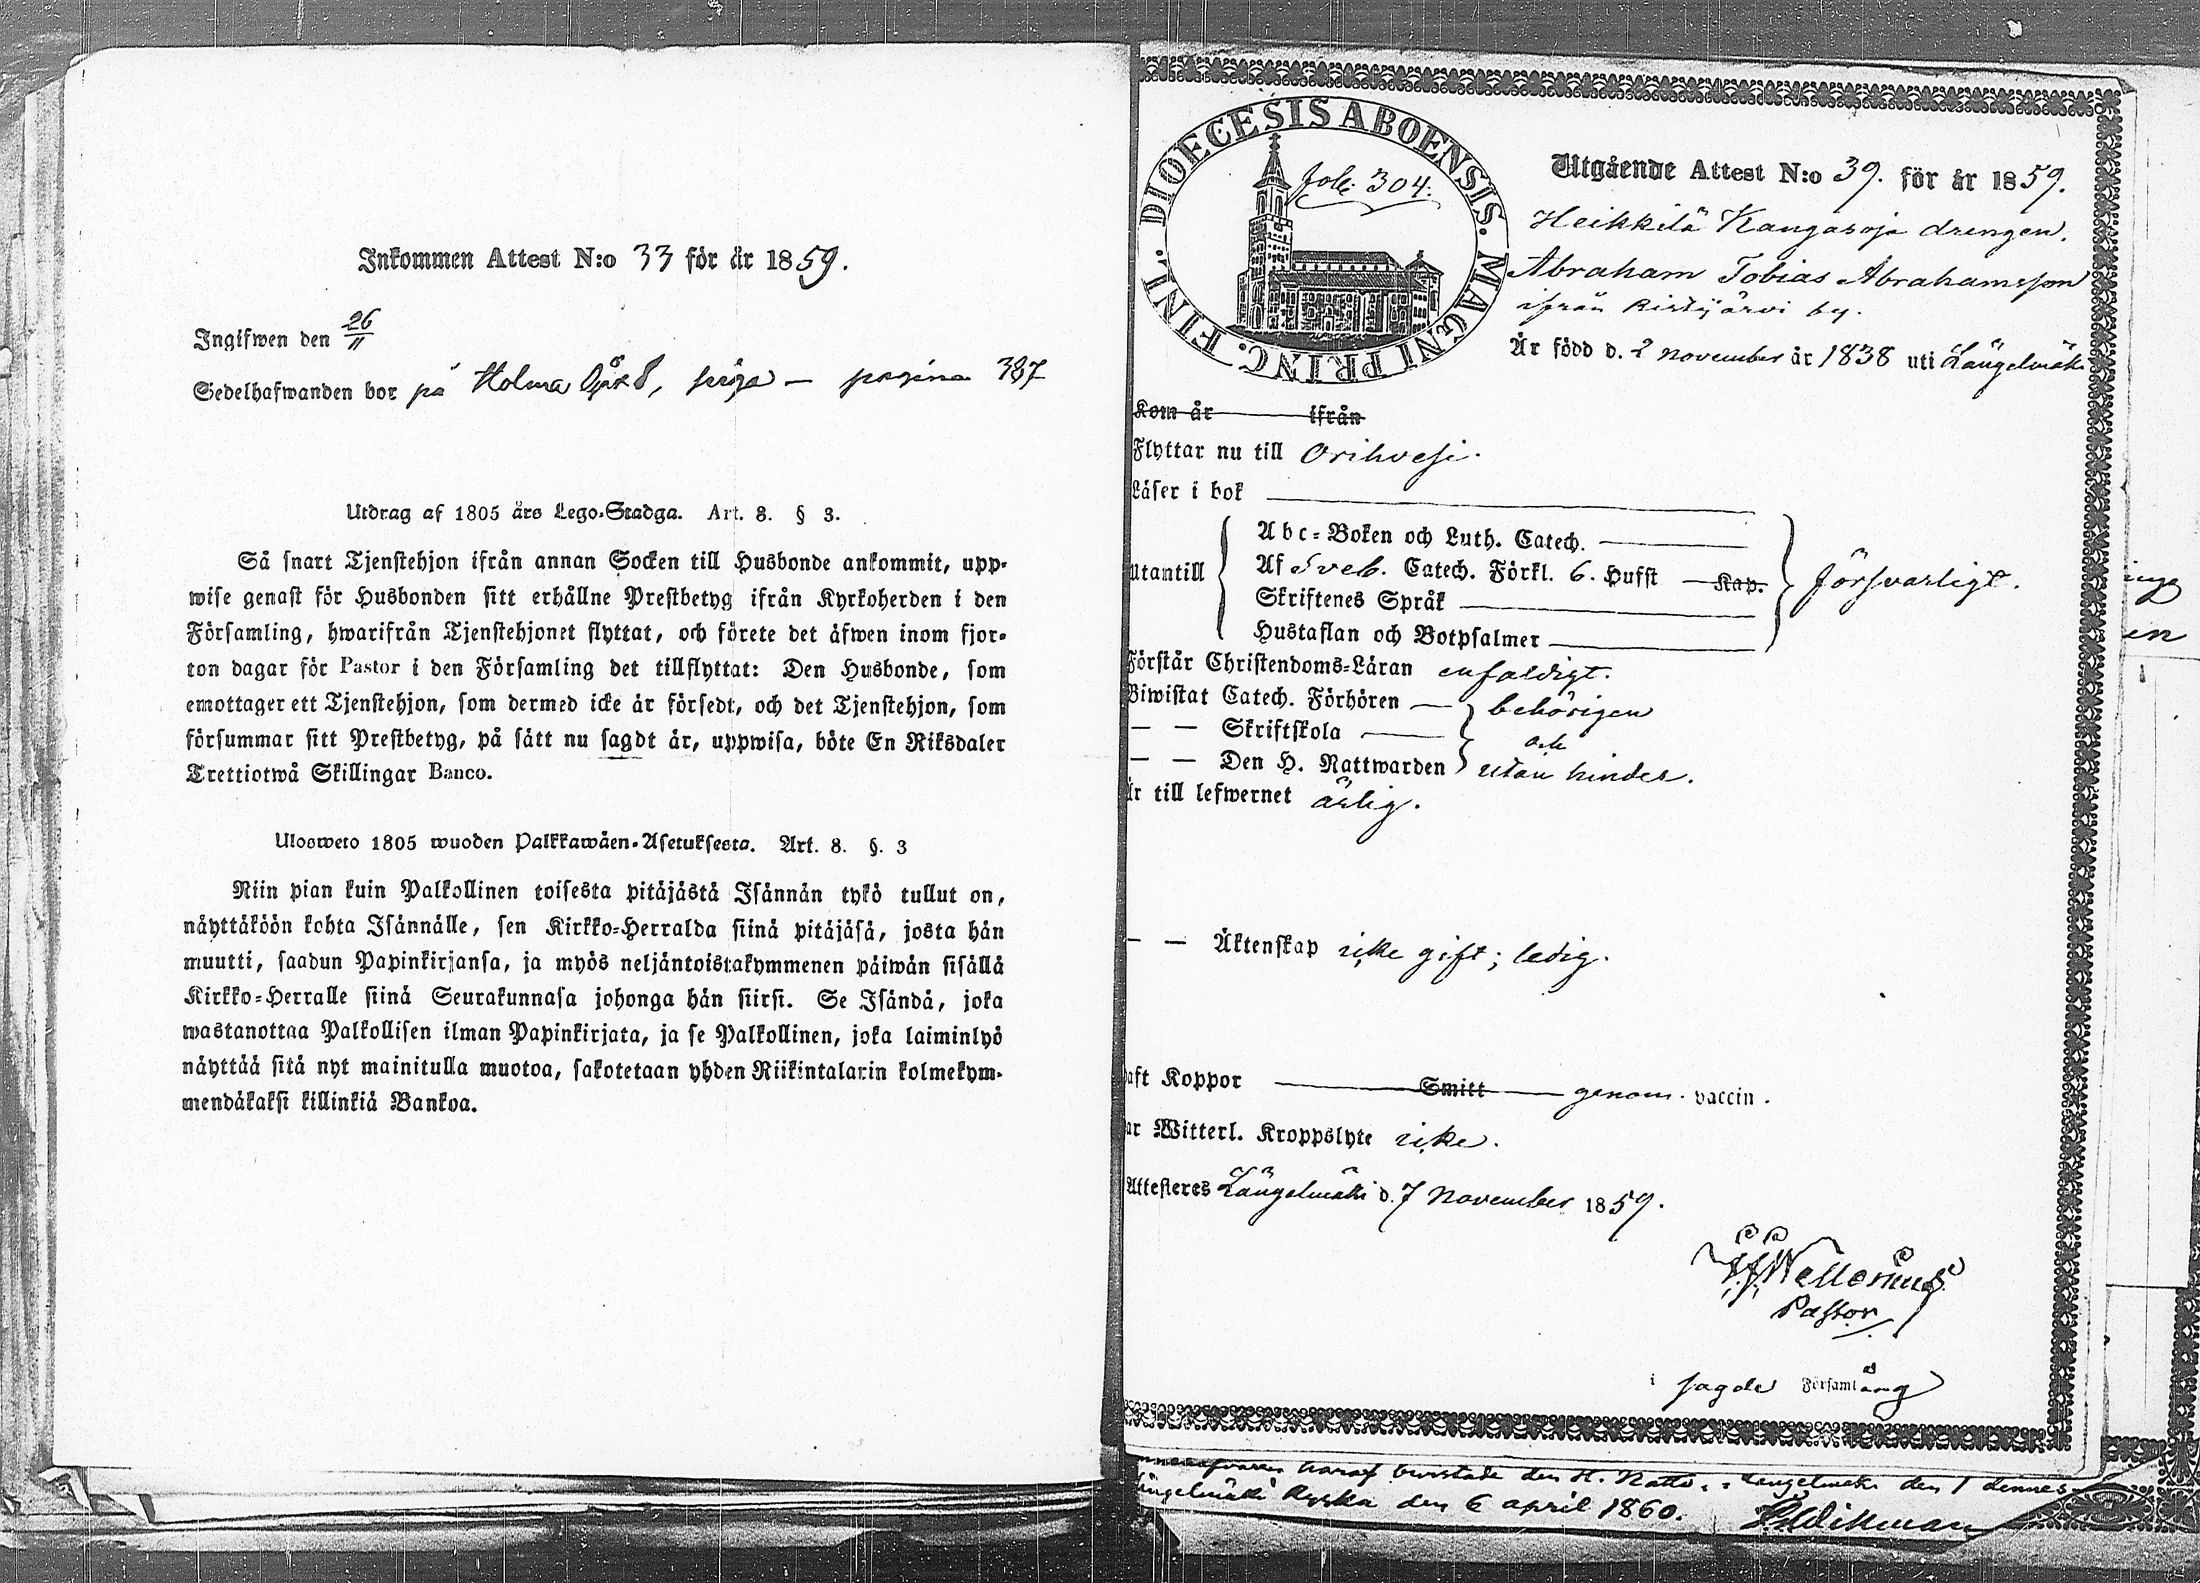 Inkommen Attest N:o 33 för år 1859.
Ingifwen den 26/11
Sedelhafwanden bor på Holma — pagina 387
Utdrag af 1805 års Lego-Stadga. Art. 8. § 3.
Så snart Tjenstehjon ifrån annan Socken till Husbonde ankommit, upp-
wise genast för Husbonden sitt erhållne Prestbetyg ifrån Kyrkoherden i den
Församling, hwarifrån Tjenstehjonet flyttat, och förete det äfwen inom fjor-
ton dagar för Pastor i den Församling det tillflyttat: Den Husbonde, som
emottager ett Tjenstehjon, som dermed icke är försedt, och det Tjenstehjon, som
försummar sitt Prestbetyg, på sätt nu sagdt är, uppwisa, böte En Riksdaler
Trettiotwå Skillingar Banco.
Ulosweto 1805 wuoden Palkkawäen-Asetuksesta. Art. 8. §. 3
Niin pian kuin Palkollinen toisesta pitäjästä Isännän tykö tullut on,
näyttäköön kohta Isännälle, sen Kirkko-Herralda siinä pitäjäsä, josta hän
muutti, saadun Papinkirjansa, ja myös neljäntoistakymmenen päiwän sisällä
Kirkko-Herralle siinä Seurakunnasa johonga hän siirsi. Se Isändä, joka
wastanottaa Palkollisen ilman Papinkirjata, ja se Palkollinen, joka laiminlyö
näyttää sitä nyt mainitulla muotoa, sakotetaan yhden Riikintalarin kolmekym-
mendäkaksi killinkiä Bankoa.
DIOECESIS ABOENSIS. MAGNI PRINC. FINL.
fol. 304.
Utgående Attest N:o 39. för år 1859.
Heikkilä Kangasoja drengen.
Abraham Tobias Abrahamsson
ifrån Ristijärvi by.
Är född d. 2 november år 1838 uti Längelmäki
Kom år ifrån
Flyttar nu till Orihvesi.
Läser i bok
Utantill
Abc-Boken och Luth. Catech.
Af Sveb. Catech. Förkl. 6. Hufst Kap.
Skriftenes Språk
Hustaflan och Botpsalmer
försvarligt.
Förstår Christendoms-Läran enfaldigt.
Biwistat Catech. Förhören — behörigen
— — Skriftskola — och
— — Den H. Nattwarden utan hinder.
Är till lefwernet ärlig.
— — Äktenskap icke gift; ledig.
haft Koppor Smitt genom vaccin.
har Witterl. Kroppslyte icke.
Attesteres Längelmäki d. 7 November 1859.
Wallenius
Pastor
i sagde Församling
haraf bivistade den H. Nattv. Längelmäki den 1 dennes
Längelmäki Kyrka den 6 april 1860.